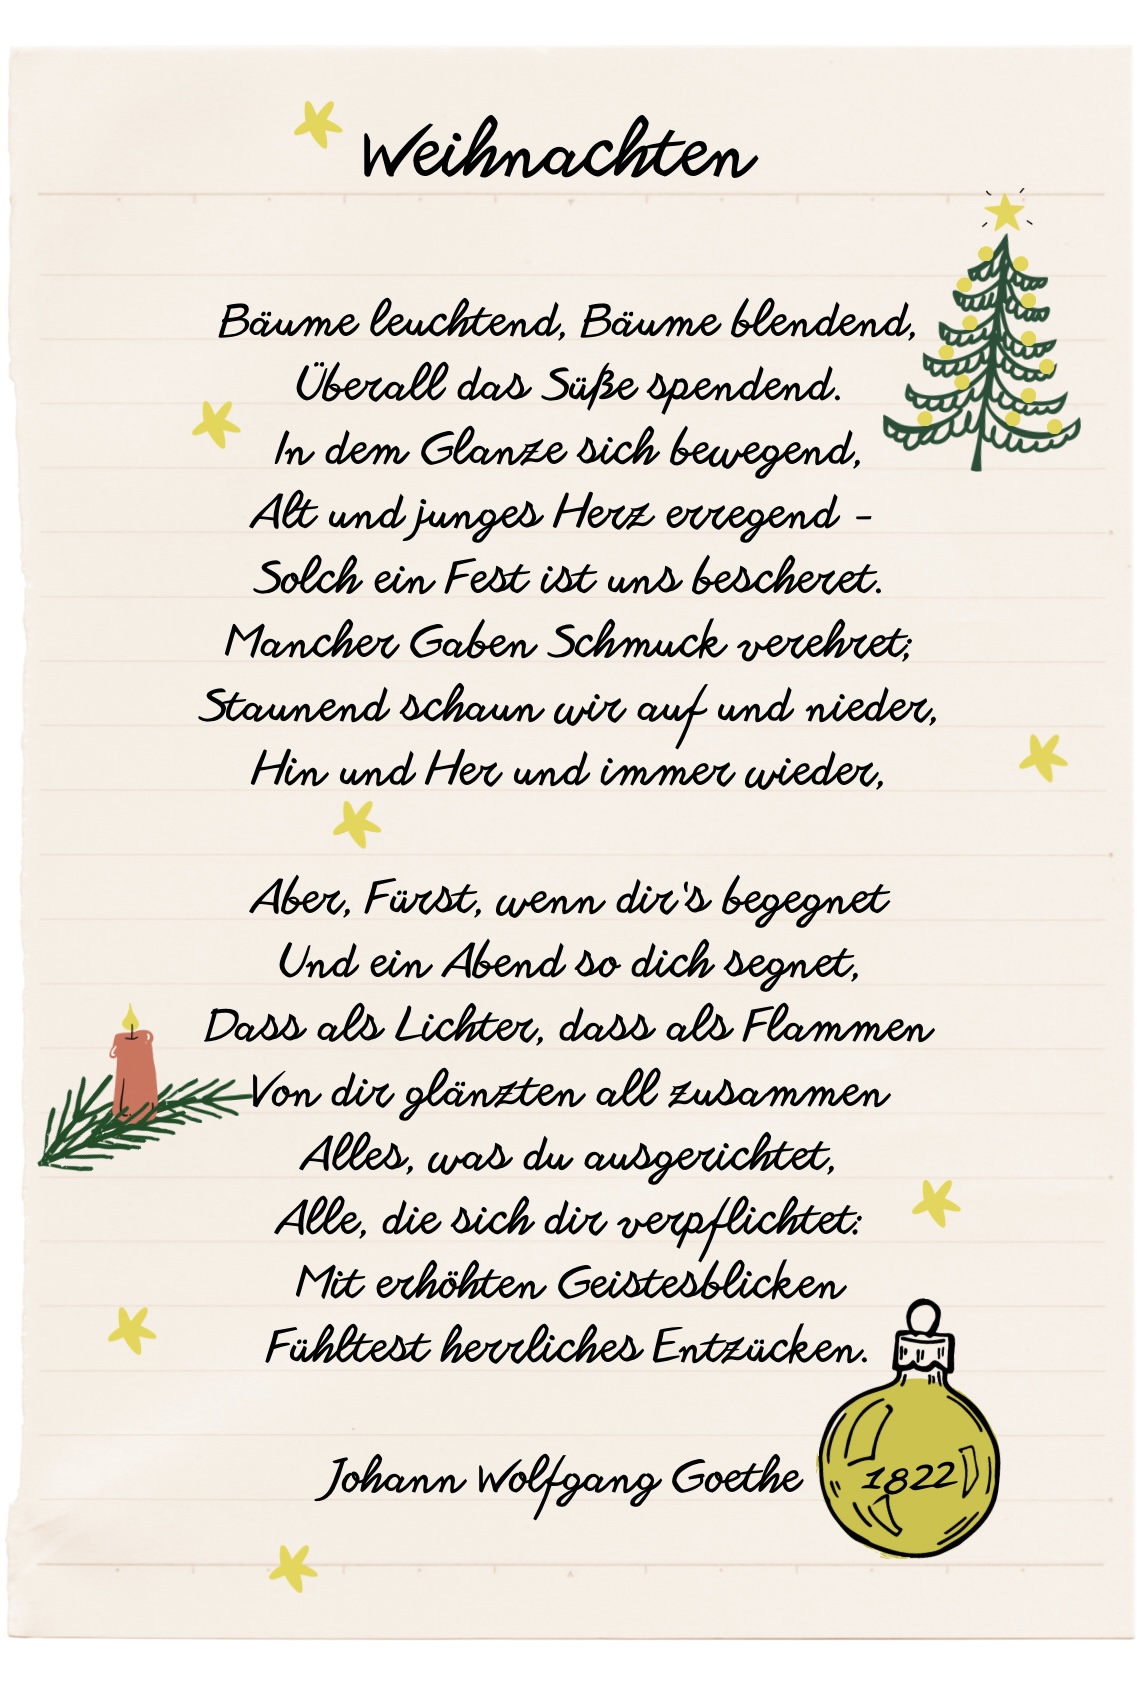 Weihnachten
Bäume leuchtend, Bäume blendend,
Überall das Süße spendend.
In dem Glanze sich bewegend,
Alt und junges Herz erregend –
Solch ein Fest ist uns bescheret.
Mancher Gaben Schmuck verehret;
Staunend schaun wir auf und nieder,
Hin und Her und immer wieder,
Aber, Fürst, wenn dir's begegnet
Und ein Abend so dich segnet,
Dass als Lichter, dass als Flammen
Von dir glänzten all zusammen
Alles, was du ausgerichtet,
Alle, die sich dir verpflichtet:
Mit erhöhten Geistesblicken
Fühltest herrliches Entzücken.
Johann Wolfgang Goethe
1822